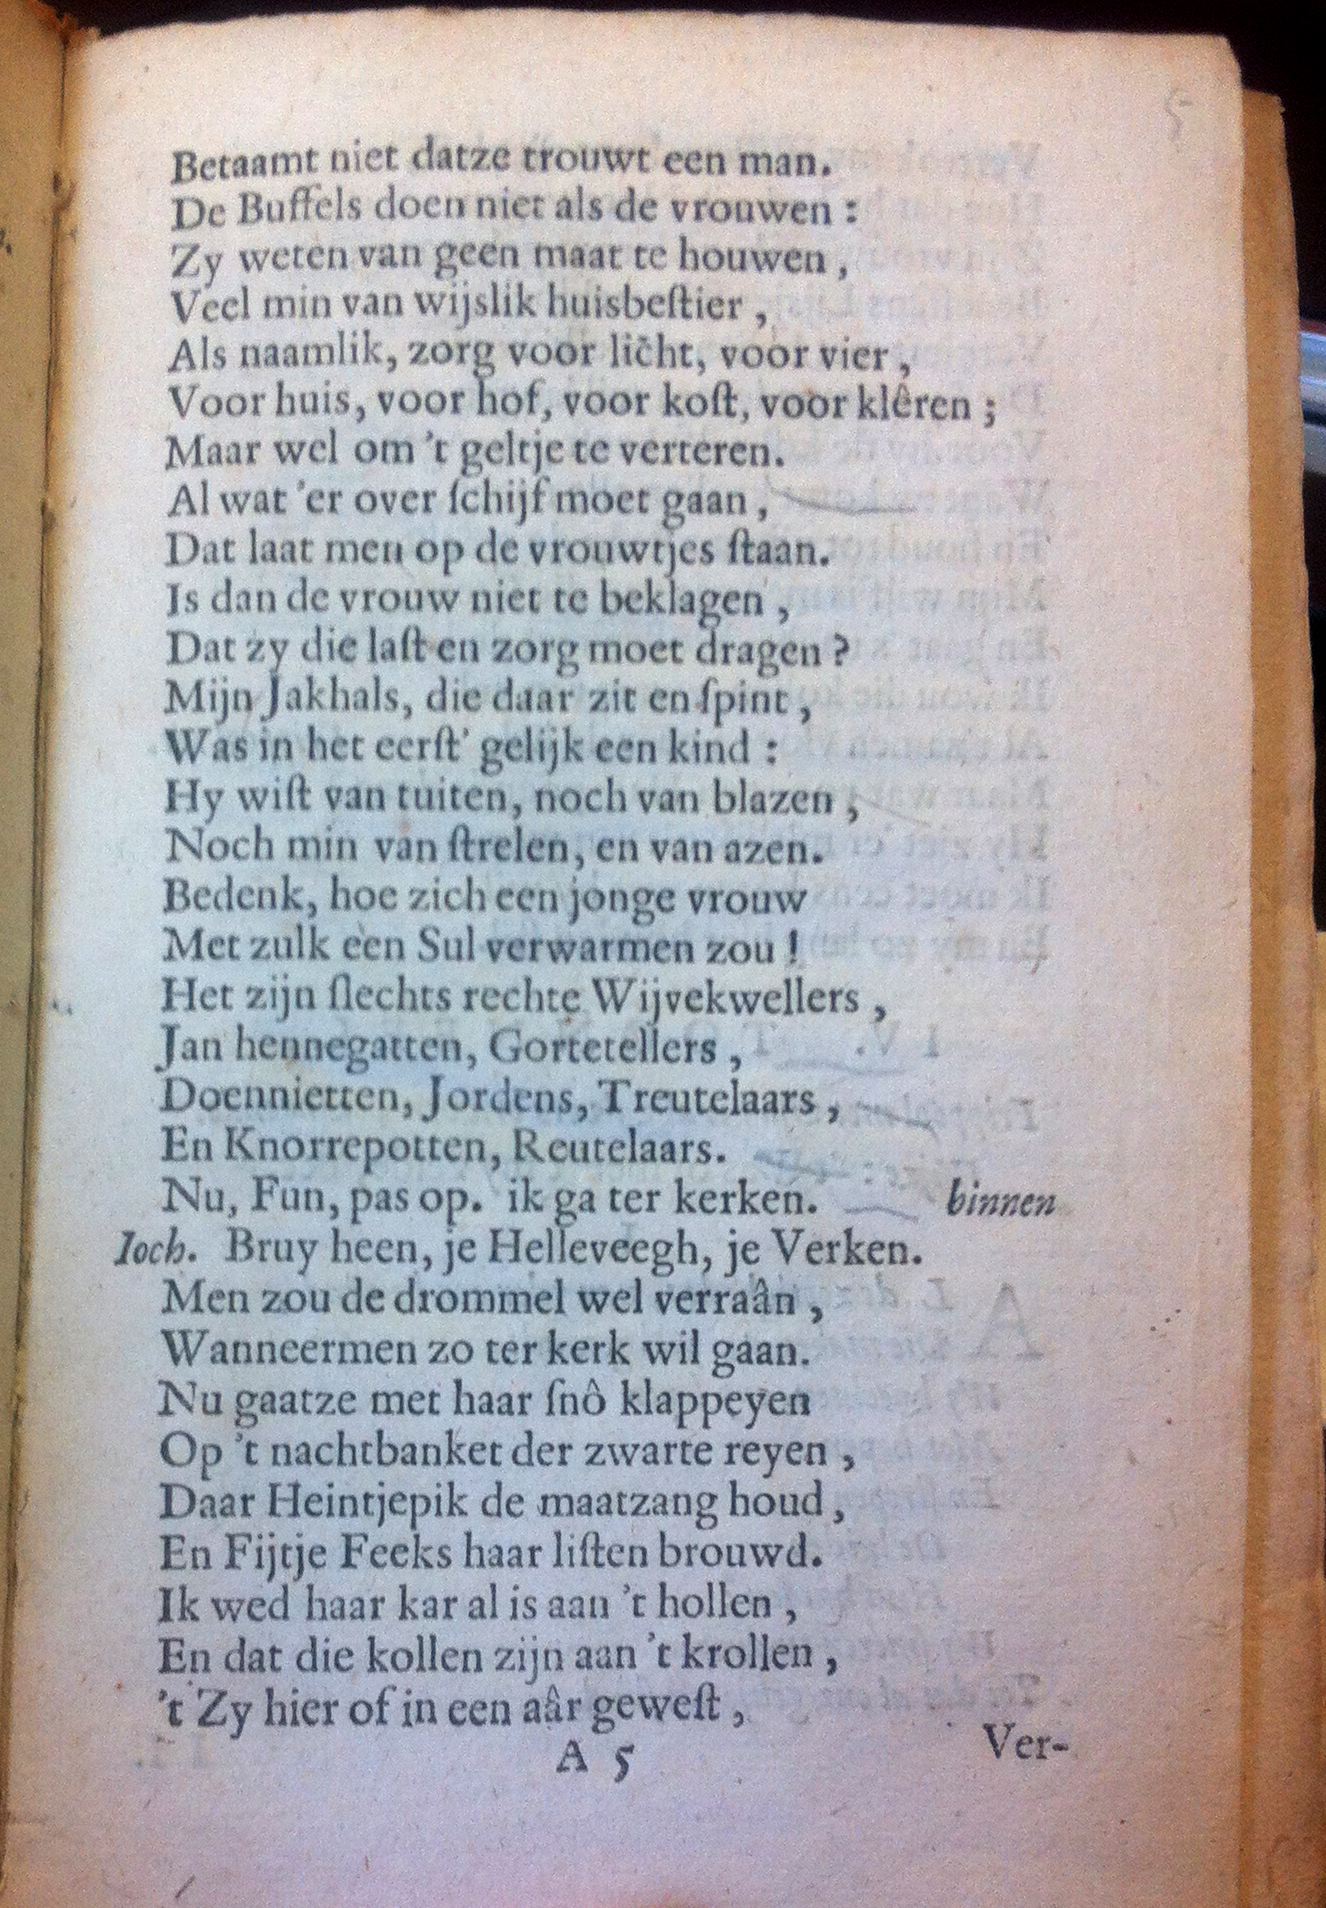 5
Betaamt niet datze trouwt een man.
De Buffels doen niet als de vrouwen :
Zy weten van geen maat te houwen ,
Veel min van wijslik huisbeſtier ,
Als naamlik, zorg voor licht, voor vier ,
Voor huis, voor hof, voor koſt, voor klêren ;
Maar wel om 't geltje te verteren.
Al wat 'er over ſchijf moet gaan ,
Dat laat men op de vrouwtjes ſtaan.
Is dan de vrouw niet te beklagen ,
Dat zy die laſt en zorg moet dragen ?
Mijn Jakhals, die daar zit en ſpint ,
Was in het eerſt' gelijk een kind :
Hy wiſt van tuiten, noch van blazen ,
Noch min van ſtrelen, en van azen.
Bedenk, hoe zich een jonge vrouw
Met zulk een Sul verwarmen zou !
Het zijn ſlechts rechte Wijvekwellers ,
Jan hennegatten, Gortetellers ,
Doennietten, Jordens, Treutelaars ,
En Knorrepotten, Reutelaars.
Nu, Fun, pas op. ik ga ter kerken. binnen
Ioch. Bruy heen, je Helleveegh, je Verken.
Men zou de drommel wel verraân ,
Wanneermen zo ter kerk wil gaan.
Nu gaatze met haar ſnô klappeyen
Op 't nachtbanket der zwarte reyen ,
Daar Heintjepik de maatzang houd ,
En Fijtje Feeks haar liſten brouwd.
Ik wed haar kar al is aan 't hollen ,
En dat die kollen zijn aan 't krollen ,
't Zy hier of in een aâr geweſt ,
A 5 Ver-